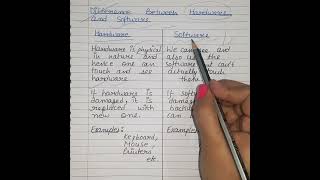 Difference between Hardware
and Software.
Hardware
Software
Hardware is physical
in nature and
hence one can
touch and see
hardware
We can see and
also use the
software but can't
actually touch
them.
If hardware is
damaged, it is
replaced with
new one.
If
damag
backu
can
Examples:
Keyboard,
Mouse,
Printers
etc.
Exam